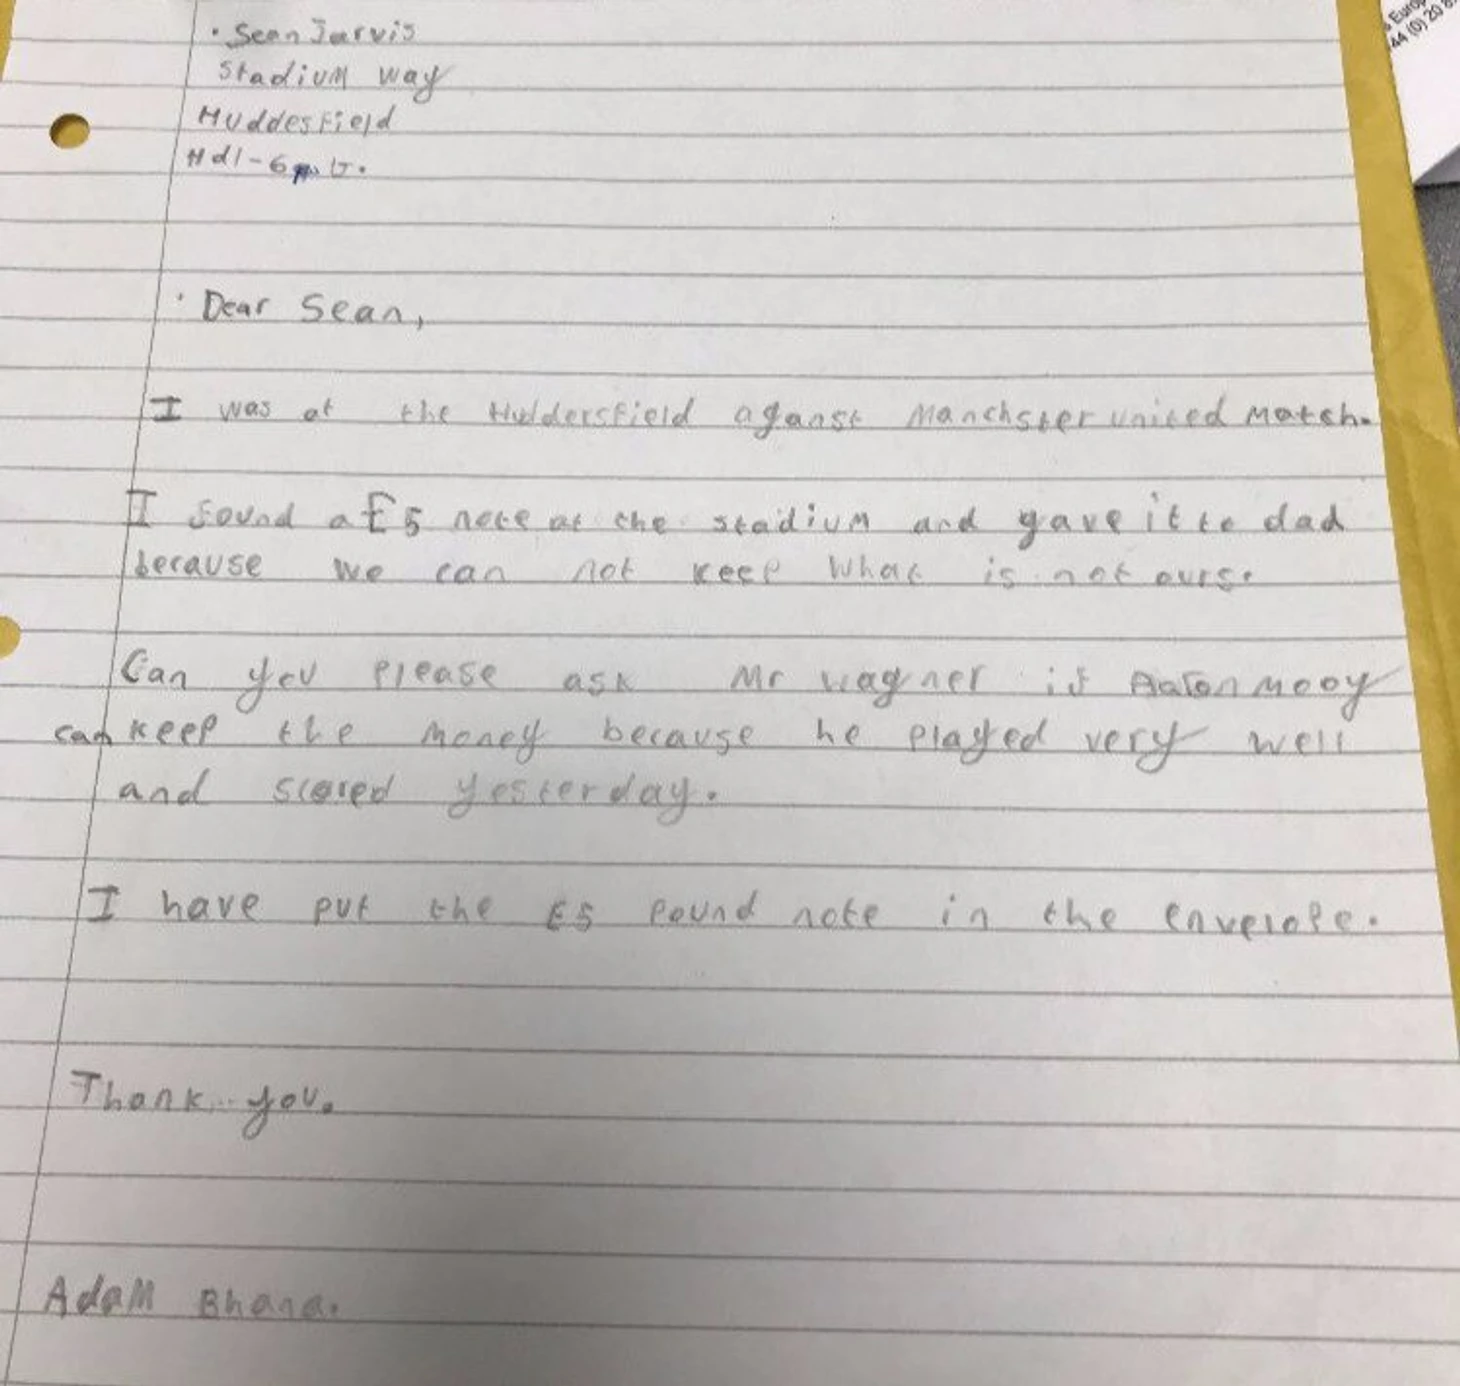 · Sean Jarvis
Stadium way
Huddesfield
Hd1-6
Dear Sean,
I was at the Huddersfield aganst Manchster united match.
I found a £5 note at the stadium and gave it to dad
because we can not keep what is not ours.
Can you please ask Mr wagner if Aaron mooy
can keep the money because he played very well
and scored yesterday.
I have put the £5 pound note in the envelope.
Thank you.
Adam Bhana.
s Europ
44 (0) 20 8